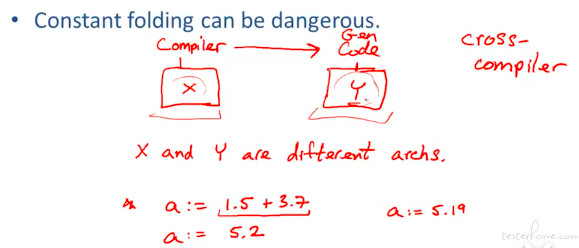 • Constant folding can be dangerous.
Compiler
Gen
Code
cross-
compiler
X
Y
X and Y are different archs.
* a := 1.5 + 3.7
a := 5.19
a := 5.2
testerhome.com